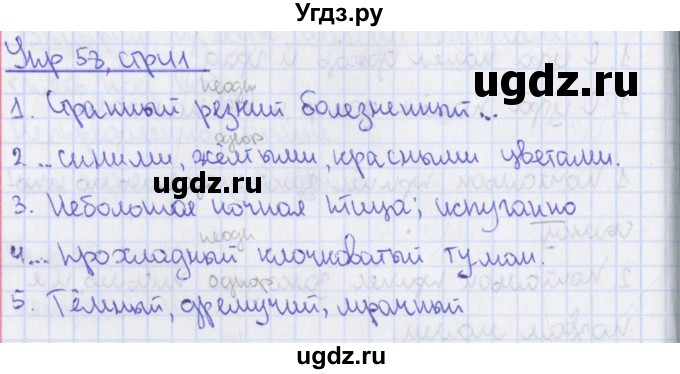 Угдз.ру
Упр 58, стр 41
неодн
1. Странный резкий болезненный...
однор
2 ... синими, жёлтыми, красными цветами.
ugdz.ru
ugdz.ru
3. Небольшая ночная птица; испуганно
неодн
4... Прохладный клочковатый туман.
однор
5. Тёмный, дремучий, мрачный
ugdz.ru
ugdz.ru